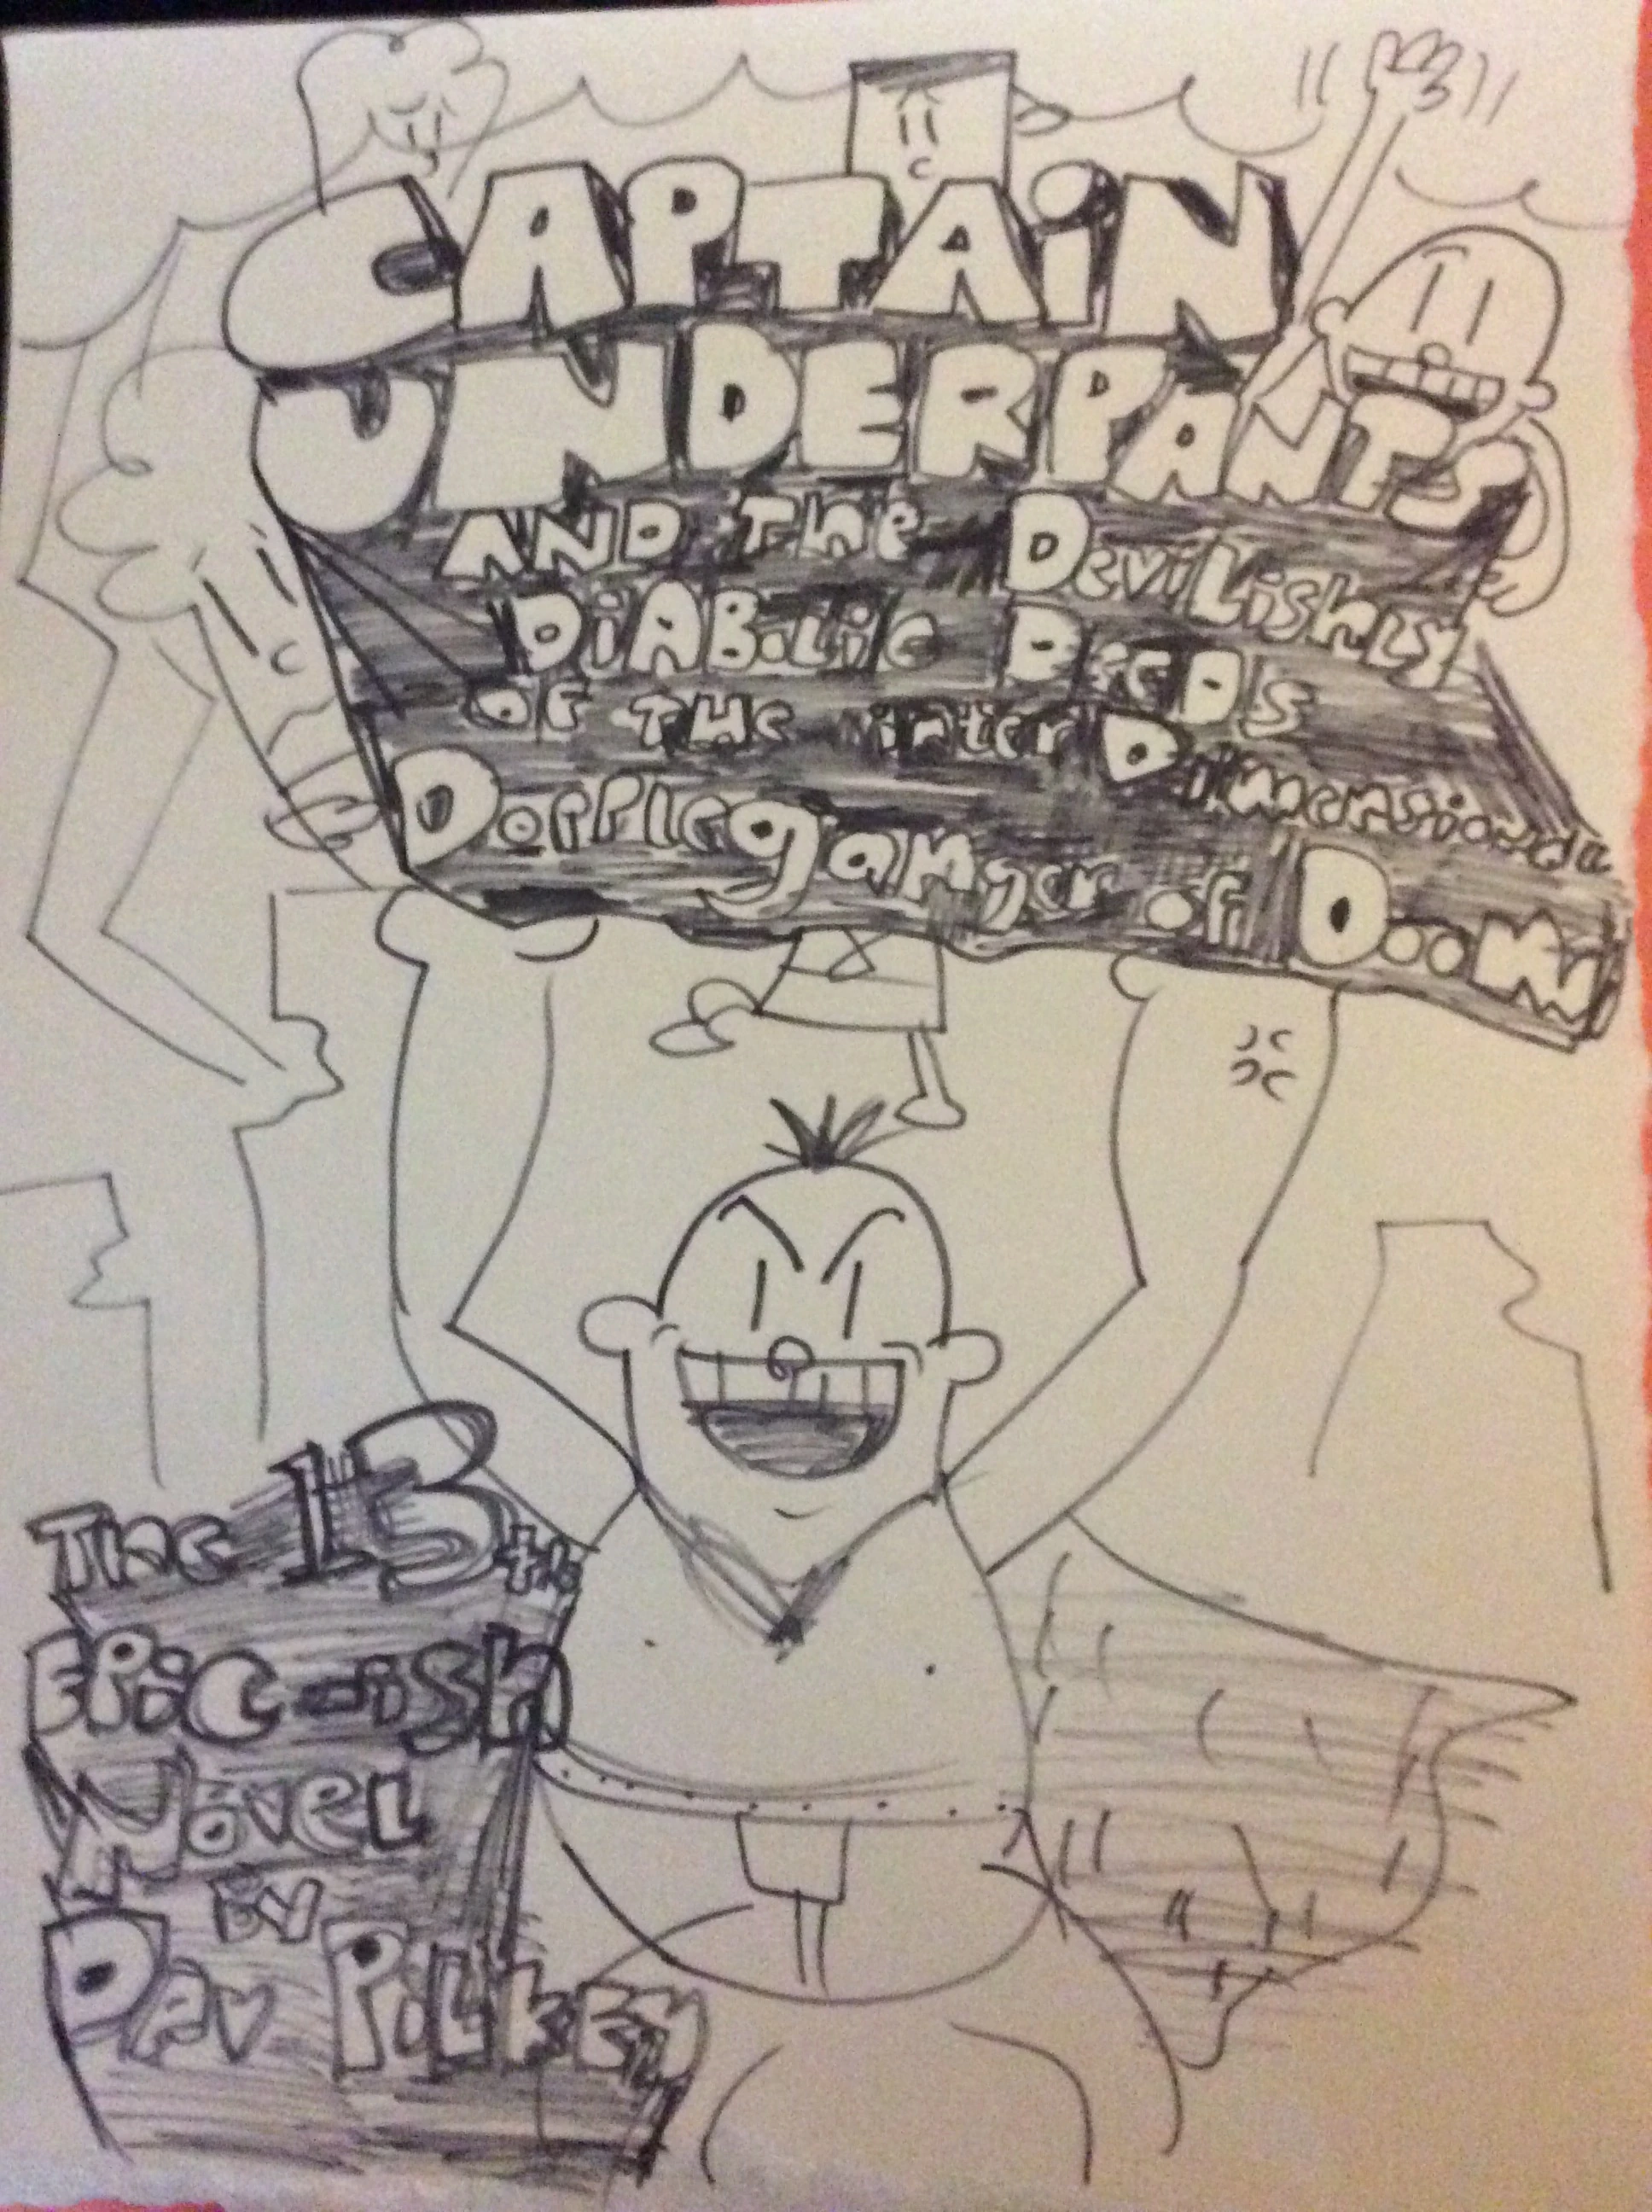 CAPTAiN
UNDERPANTS
AND The DeviLishly
DiABoLic DeeDs
OF THe interDimensional
Dopplegamger of
Doom!
The 13th
EPiC-ish
Novel
BY
DAv PiLkEy